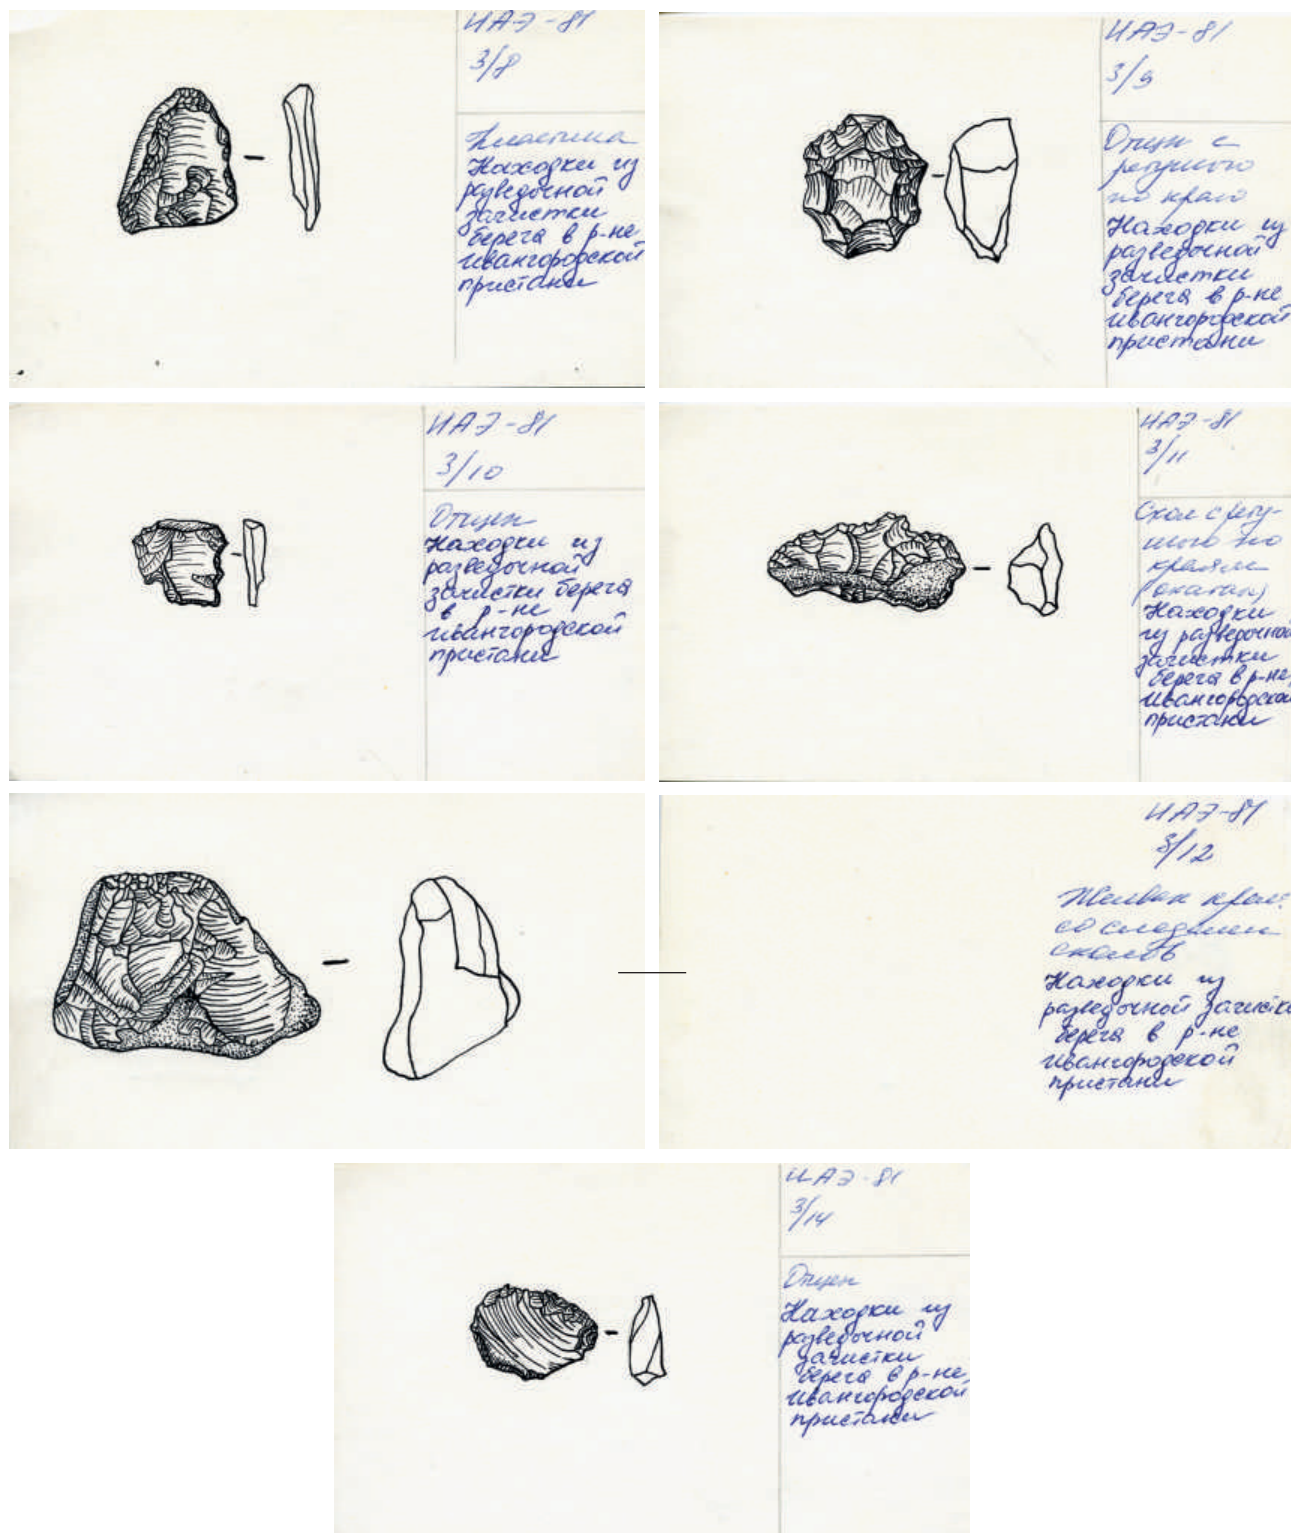 ИАЭ-81
3/8
Пластина
Находки из
разведочной
зачистки
берега в р-не
ивангородской
пристани
ИАЭ-81
3/9
Отщеп с
ретушью
по краю
Находки из
разведочной
зачистки
берега в р-не
ивангородской
пристани
ИАЭ-81
3/10
Отщеп
Находки из
разведочной
зачистки берега
в р-не
ивангородской
пристани
ИАЭ-81
3/11
Скол с рету-
шью по
краям
(окатан)
Находки
из разведочной
зачистки
берега в р-не
ивангородской
пристани
ИАЭ-81
3/12
Желвак крем.
со следами
сколов
Находки из
разведочной зачистки
берега в р-не
ивангородской
пристани
ИАЭ-81
3/14
Отщеп
Находки из
разведочной
зачистки
берега в р-не
ивангородской
пристани